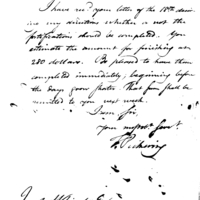 I have rec'd your letter of the 18th desiring
my directions whether or not the
fortifications should be completed. You
estimate the amount for finishing at
280 dollars. Be pleased to have them
completed immediately, beginning before
the days grow shorter. That sum shall be
remitted to you next week.
I am Sir,
your most. Servt.
T. Pickering